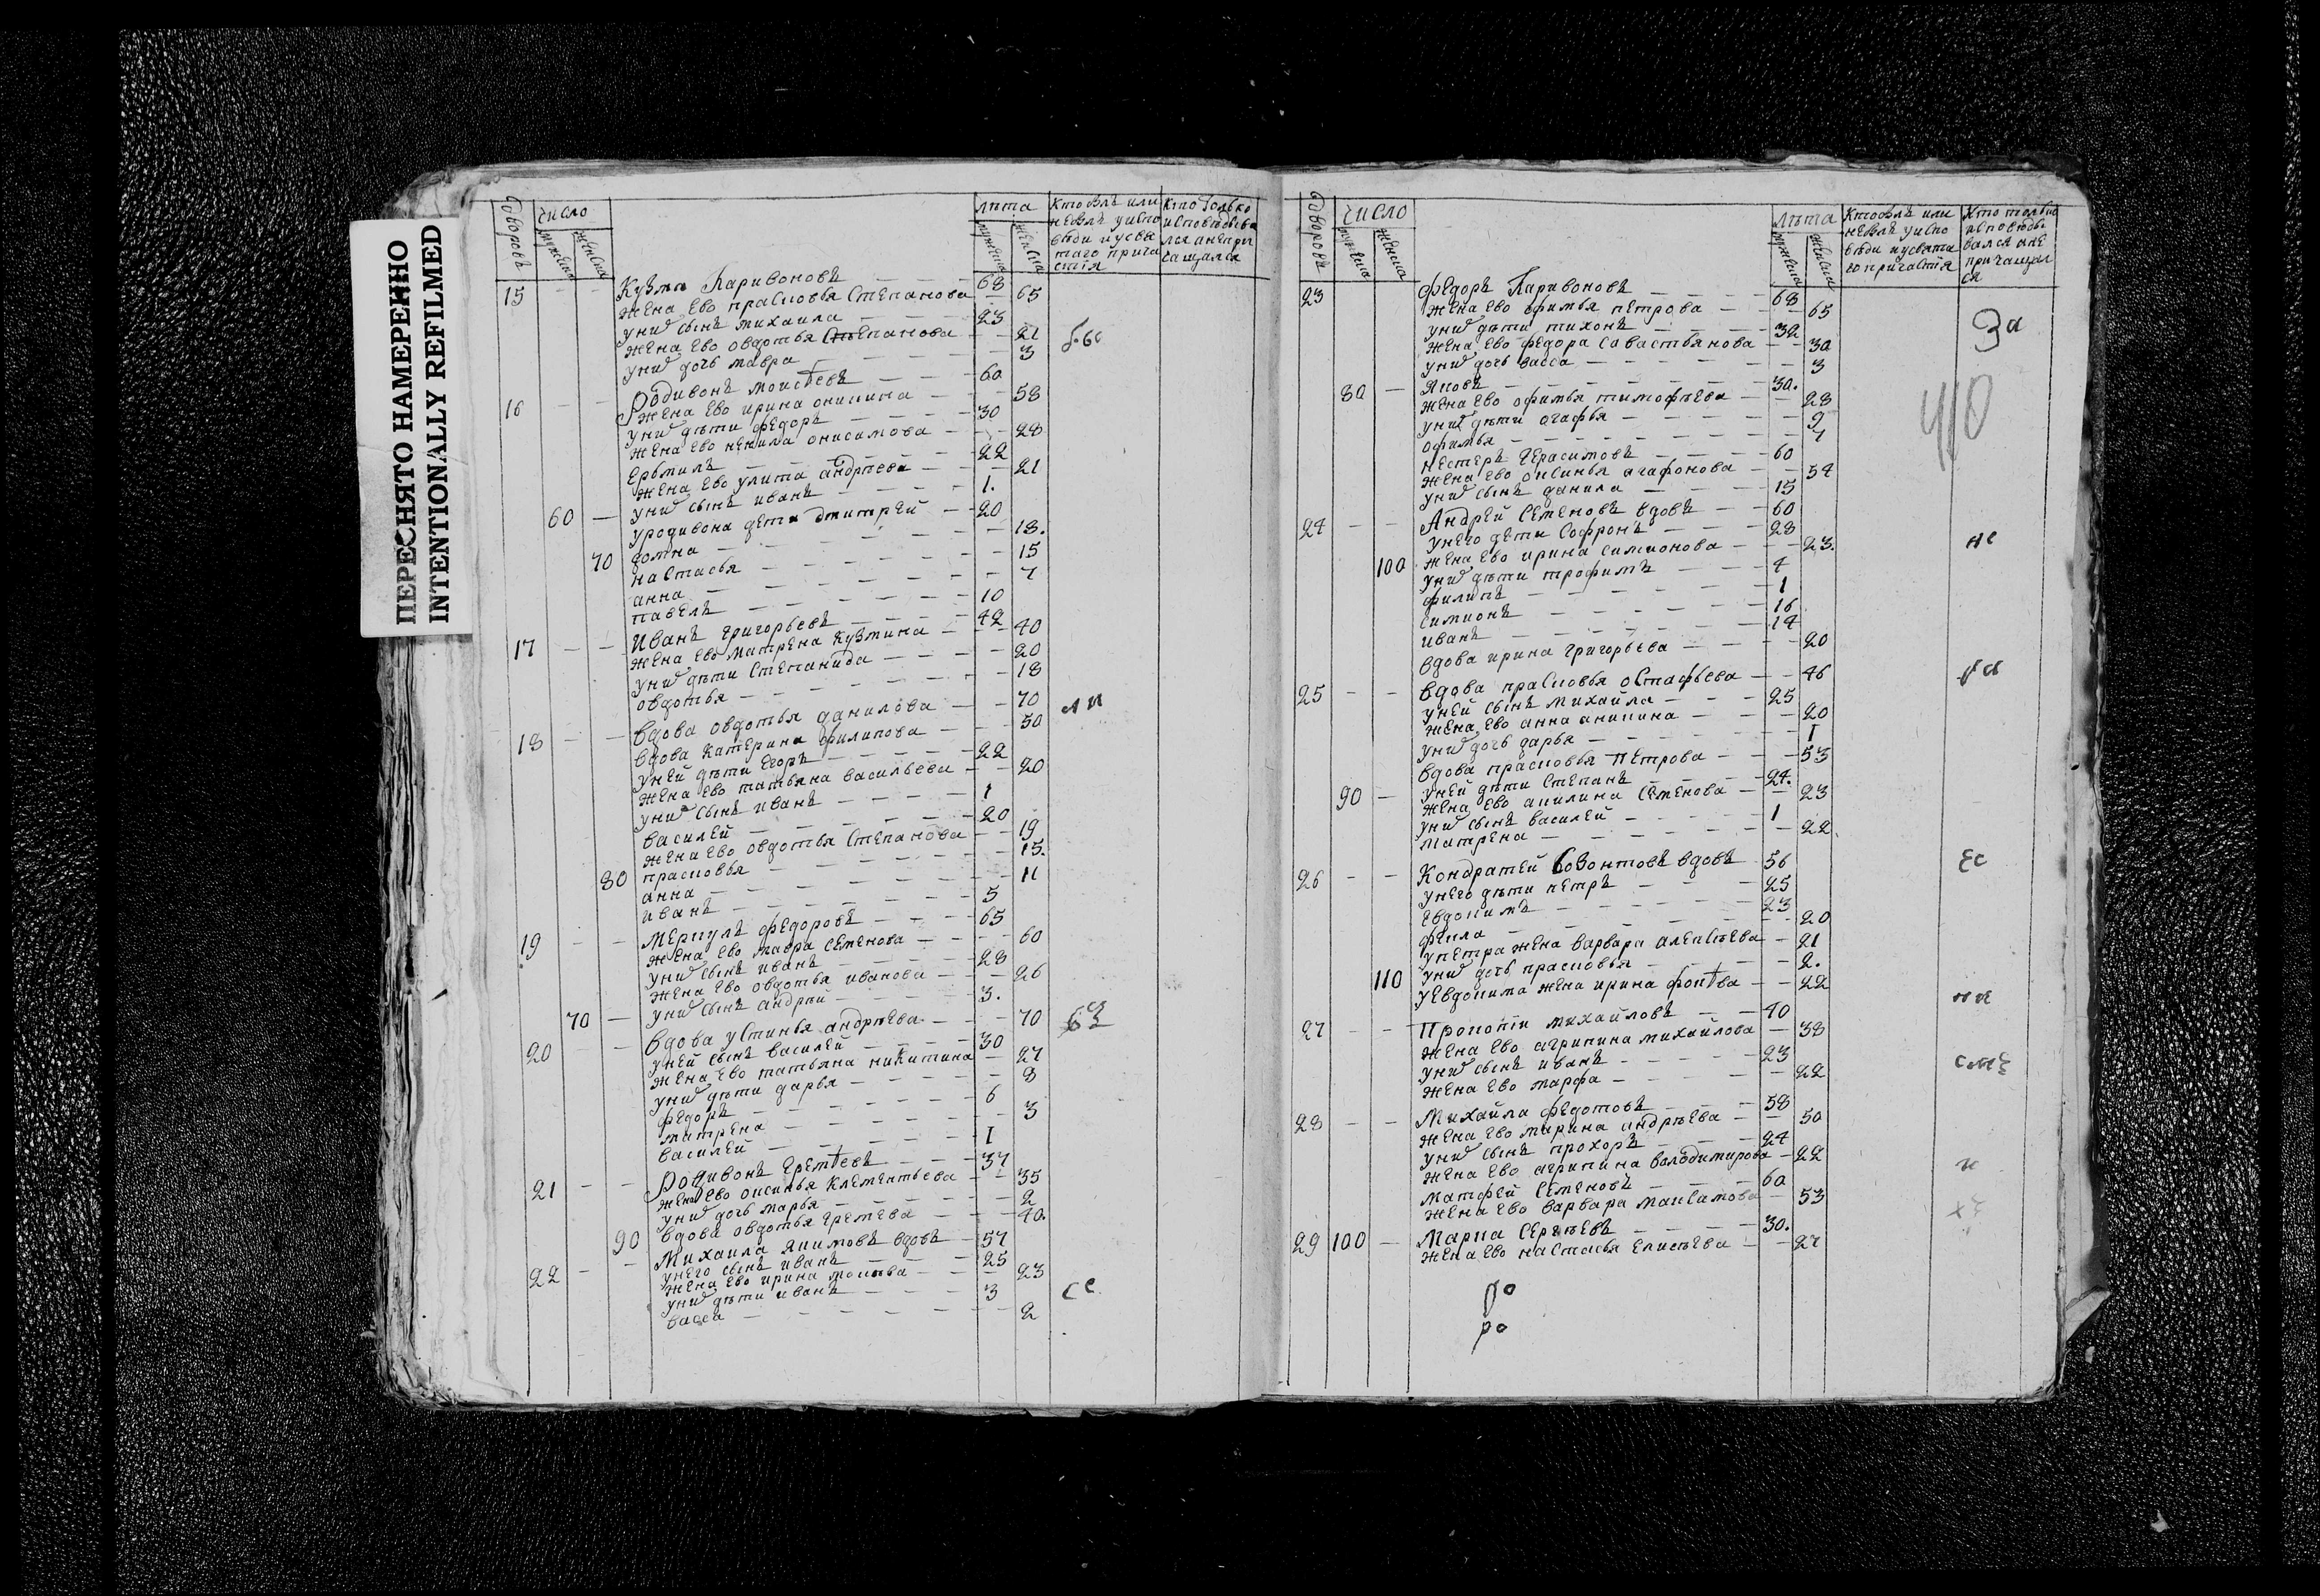 ПЕРЕСНЯТО НАМЕРЕННО
INTENTIONALLY REFILMED
дворовъ
число
мужеска
женска
лѣта
мужеска
женска
Кто былъ или
небылъ уиспо
вѣди иусвя
таго прича
стїя
Кто только
исповѣдыва
лся анепри
чащался
15 — — Кузма Ларивоновъ — — — 68
жена ево прасковья Степанова — — 65
уних сынъ михаила — — — 23
жена ево овдотья Степанова — — 21
уних дочь мавра — — — 3
16 — — Родивонъ моисѣевъ — — — 60
жена ево ирина оникина — — 58
уних дѣти федоръ — — — 30
жена ево ненила онисимова — — 28
Ермилъ — — — 22
жена ево улита андрѣева — — 21
60 — уних сынъ иванъ — — — 1.
уродивона дети дмитрей — 20
домна — — — 18.
70 настасья — — — 15
анна — — — 7
павелъ — — — 10
17 — — Иванъ григорьевъ — — 42
жена ево матрена кузмина — — 40
уних дѣти Степанида — — — 20
овдотья — — — 18
вдова овдотья данилова — — 70
18 — — вдова катерина филипова — — 50
уней дѣти егоръ — — — 22
жена ево татьяна васильева — — 20
уних сынъ иванъ — — — 1
василей — — — 20
жена ево овдотья Степанова — — 19
80 прасковья — — — 15.
анна — — — 11
иванъ — — — 5
19 — — Меркулъ федоровъ — — — 65
жена ево мавра семенова — — 60
уних сынъ иванъ — — — 28
жена ево овдотья иванова — — 26
70 — уних сынъ андрѣй — — — 3.
20 — вдова устинья андрѣева — — 70
уней сынъ василей — — — 30
жена ево татьяна никитина — 27
уних дѣти дарья — — — 8
федоръ — — — 6
матрена — — — 3
василей — — — 1
21 — — Родивонъ еремѣевъ — — — 37
жена ево оксинья клементьева — — 35
уних дочь марья — — — 2
90 вдова овдотья еремѣева — — 40.
22 — — Михаила якимовъ вдовъ — 57
унего сынъ иванъ — — — 25
жена ево ирина — — 23
уних дѣти иванъ — — — 3
васса — — — 2
сс
дворовъ
число
мужеска
женска
лѣта
мужеска
женска
Кто былъ или
небылъ уиспо
вѣди исвята
го причастїя
Кто только
исповѣды
вался ане
причащал
ся
23 Федоръ Ларивоновъ — — — 68
жена ево офимья петрова — — 65
уних дѣти тихонъ — — — 32
жена ево федора савастьянова — — 30
уних дочь васса — — — 3
80 — яковъ — — — 30.
жена ево офимья тимофѣева — — 28
уних дѣти огафья — — — 9
офимья — — — 7
нестеръ герасимовъ — — 60
жена ево оксинья агафонова — — 54
уних сынъ данила — — — 15
24 — — Андрей Семеновъ вдовъ — — 60
унего дети Софронъ — — — 28
100 жена ево ирина симионова — — 23.
уних дѣти трофимъ — — — 4
филипъ — — — 1
симионъ — — — 16
иванъ — — — 14
вдова ирина григорьева — — 20
25 — — вдова прасковья остафьева — — 46
уней сынъ михайла — — — 25
жена ево анна аникина — — — 20
уних дочь дарья — — — 1
вдова прасковья петрова — — — 53
уней дѣти степанъ — — — 24.
90 — жена ево акилина семенова — — 23
уних сынъ василей — — — 1
матрена — — — 22
26 — — Кондратей Созонтовъ вдовъ — 56
унего дѣти петръ — — — 25
евдокимъ — — — 23
фекла — — — 20
упетра жена варвара алексѣева — 21
уних дочь прасковья — — — 2.
110 уевдокима жена ирина фокѣева — — 22
27 — — Прокопи михайловъ — — — 40
жена ево агрипина михайлова — 38
уних сынъ иванъ — — — 23
жена ево марфа — — — 22
28 — — Михайла федотовъ — — — 58
жена ево марина андрѣева — — 50
уних сынъ прохоръ — — — 24
жена ево агрипина валодимирова — 22
матфей семеновъ — — — 60
жена ево варвара максимова — 53
29 100 — Марка Сергѣевъ — — — 30.
жена ево настасья елисѣева — — 27
За
40
не